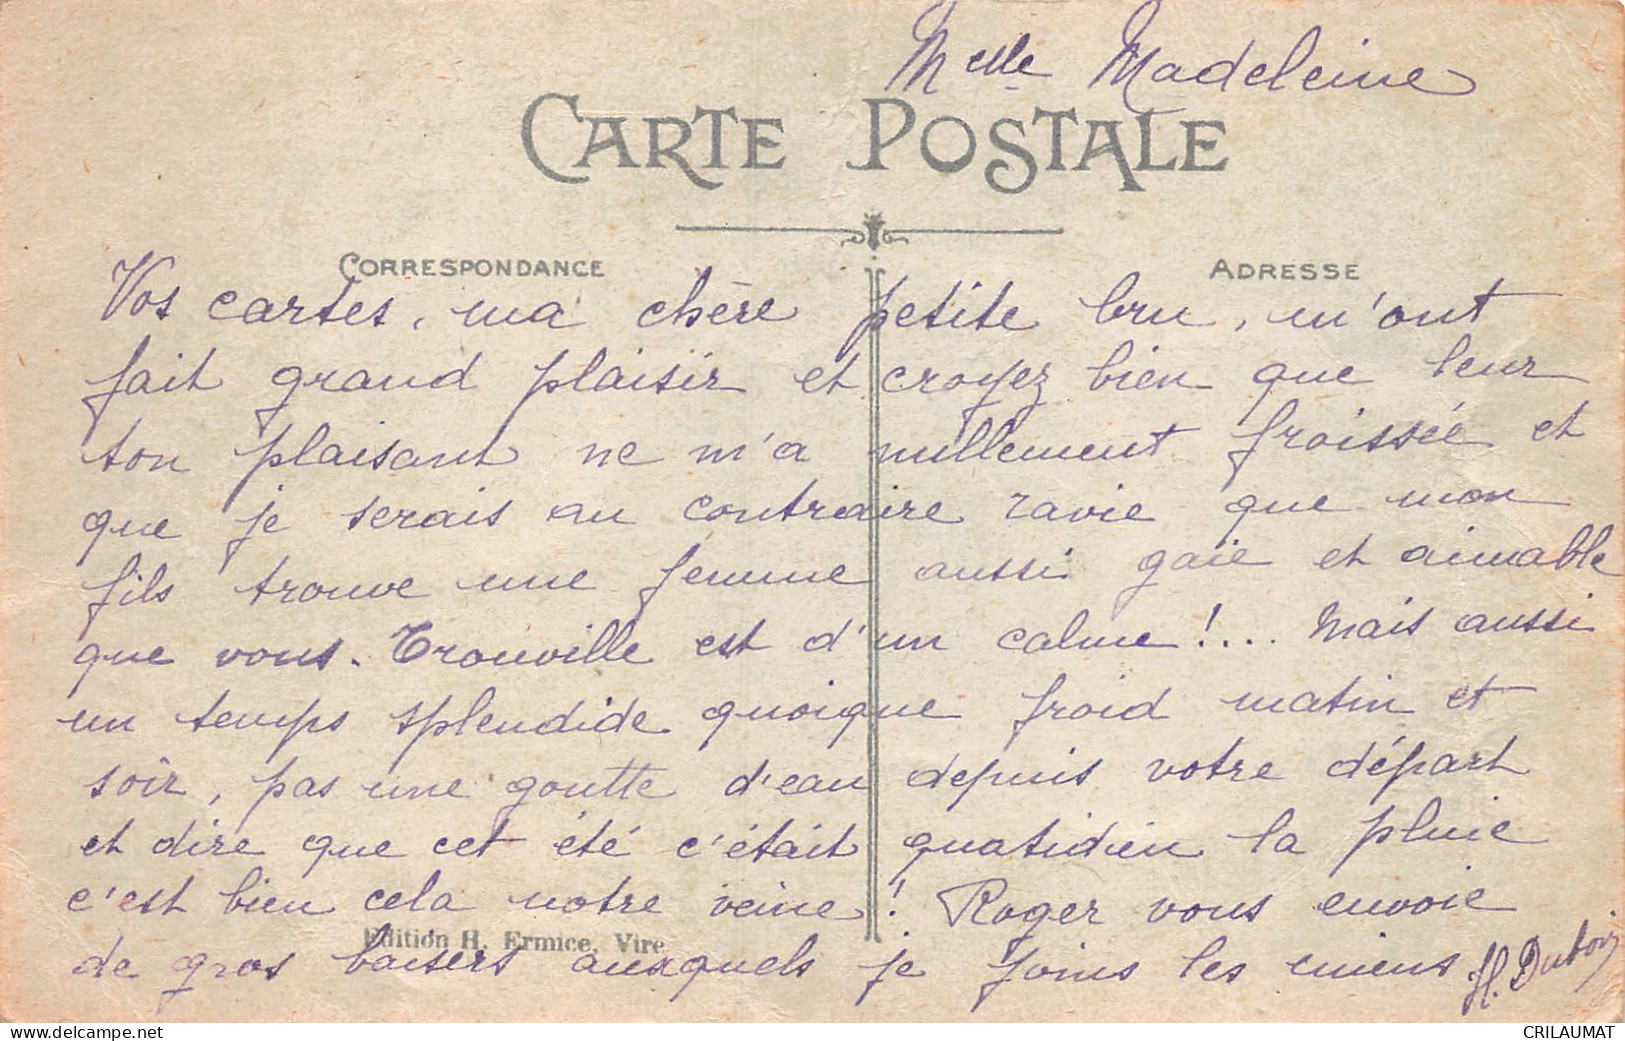 Melle Madeleine
CARTE POSTALE
CORRESPONDANCE
ADRESSE
Vos cartes, ma chère petite bru, m'ont
fait grand plaisir et croyez bien que leur
ton plaisant ne m'a nullement froissée et
que je serais au contraire ravie que mon
fils trouve une femme aussi gaie et aimable
que vous. Trouville est d'un calme !... Mais aussi
un temps splendide quoique froid matin et
soir, pas une goutte d'eau depuis votre départ
et dire que cet été c'était quatidien la pluie
c'est bien cela notre veine ! Roger vous envoie
Edition H. Ermice, Vire
de gros baisers auxquels je joins les miens
H. Dubois
CRILAUMAT